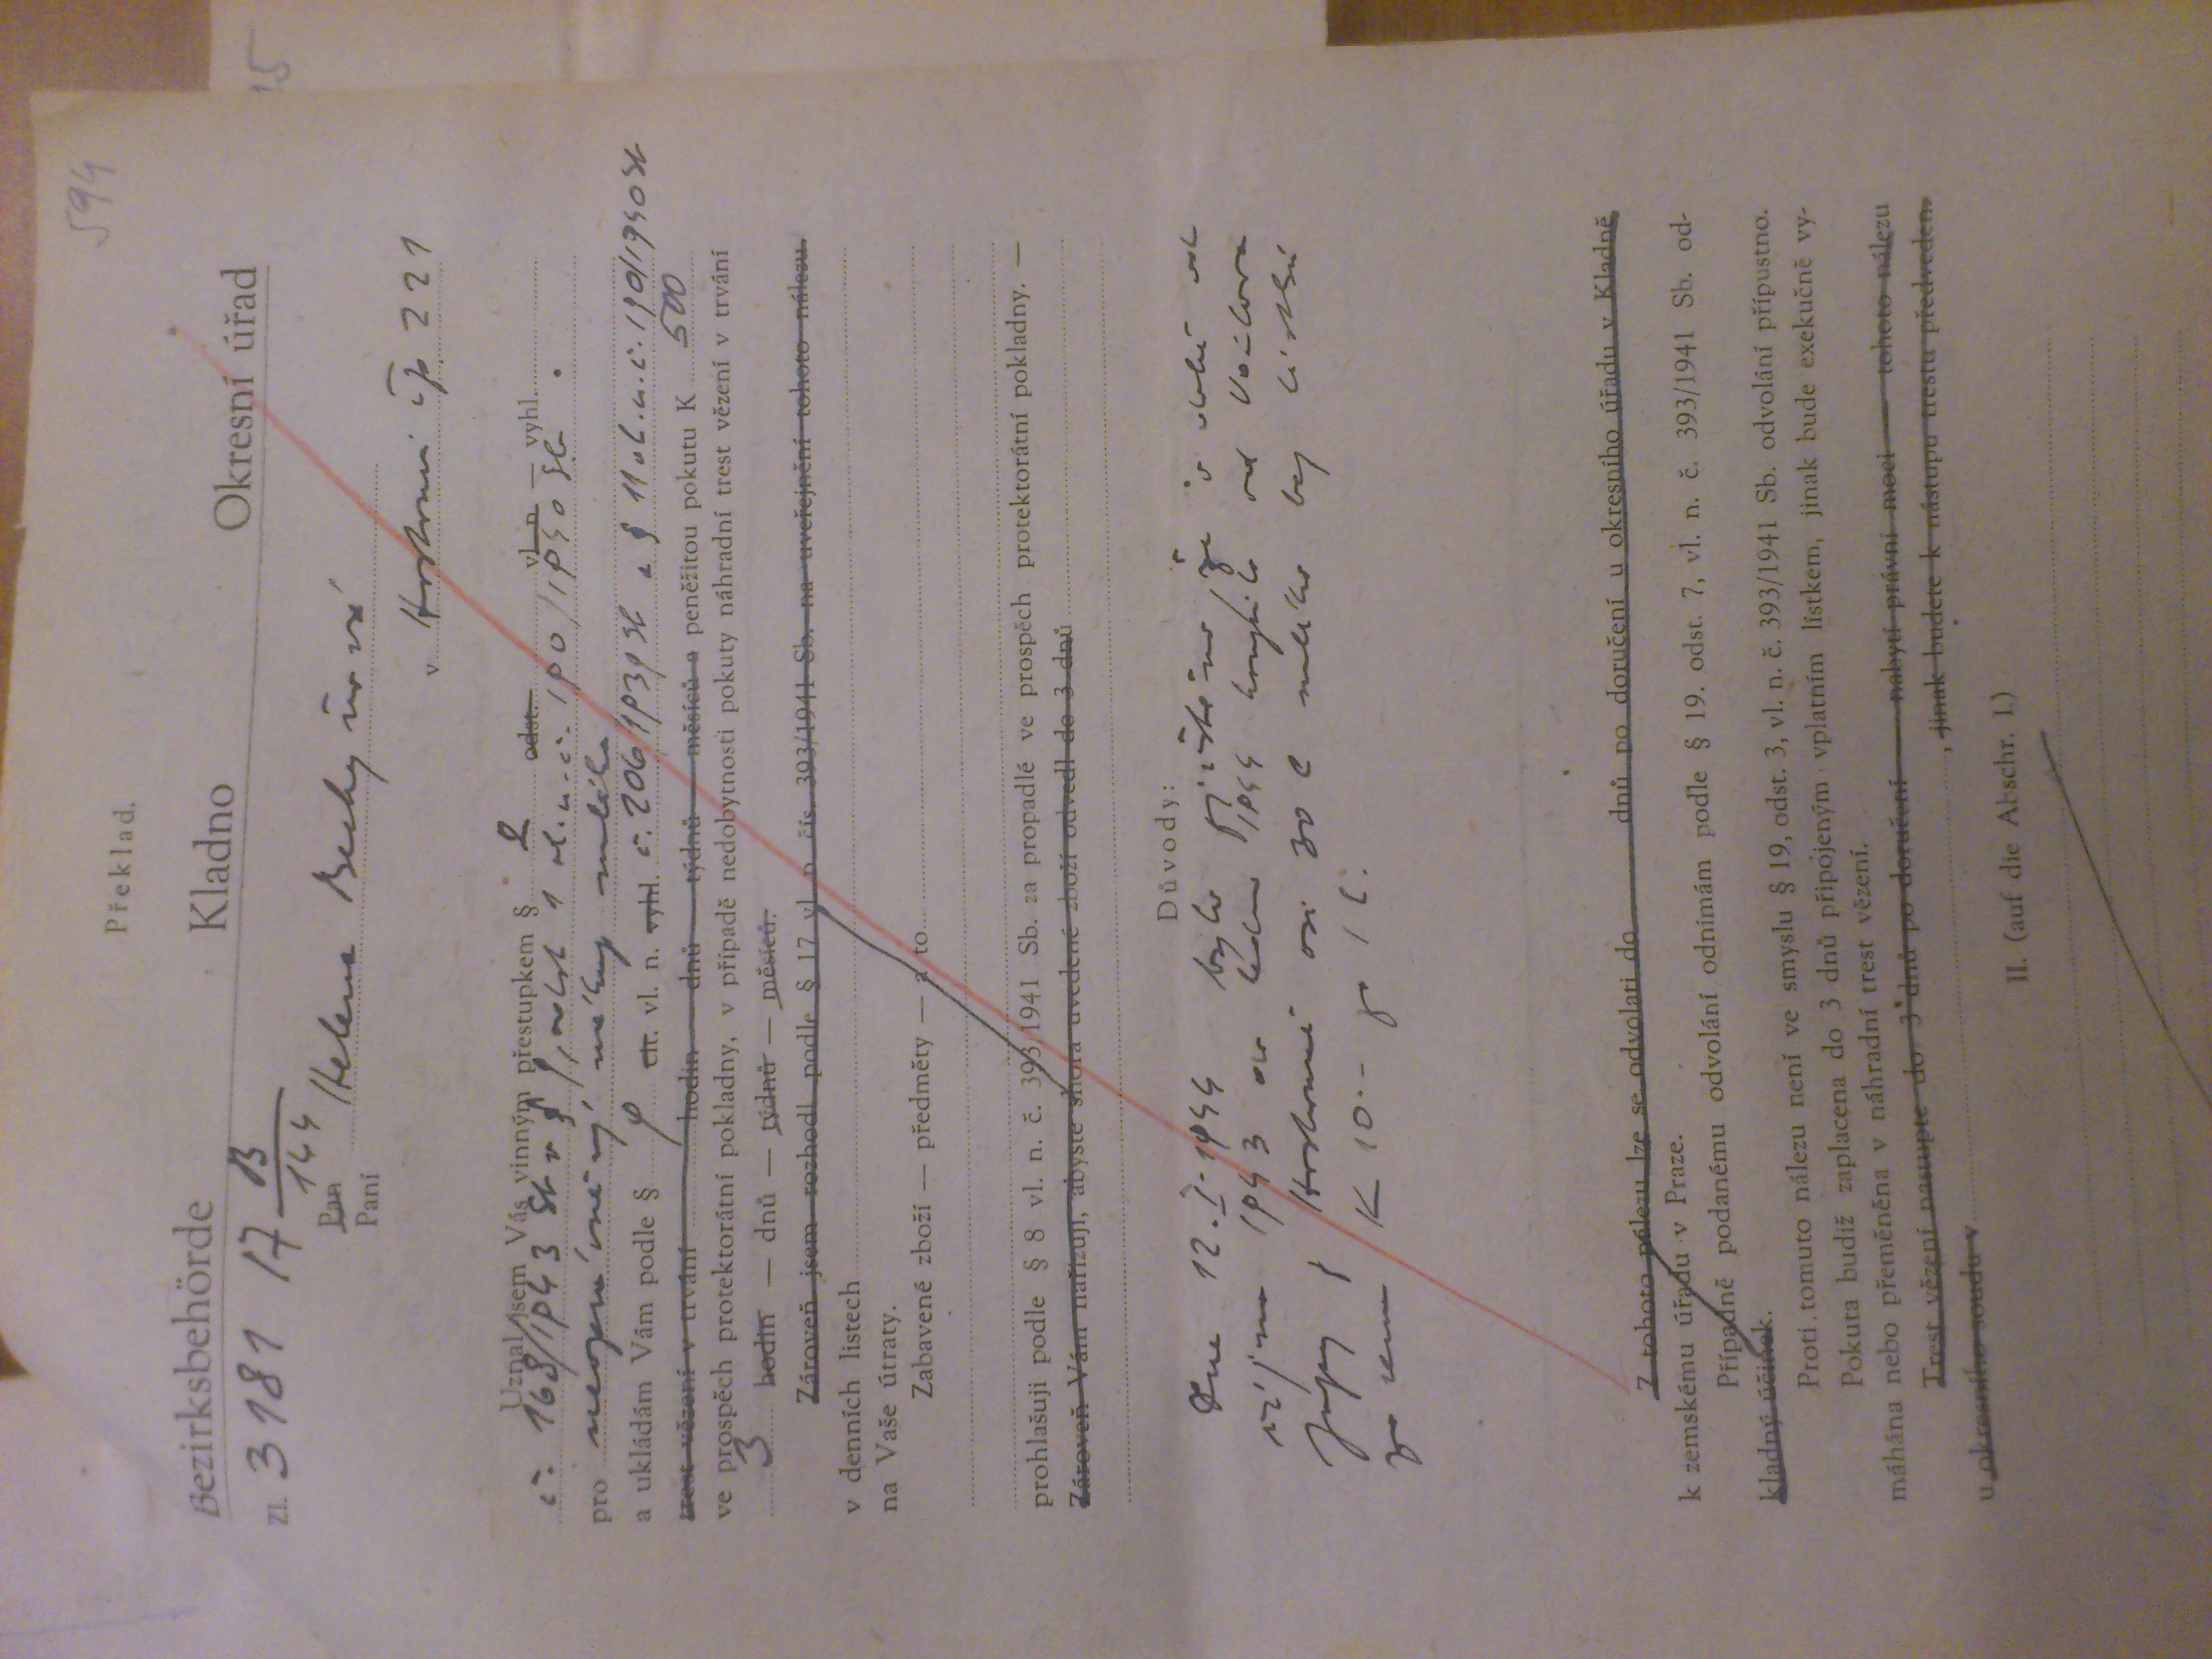 594
Překlad.
Bezirksbehörde Kladno Okresní úřad
Zl. 3181 17 B/144
Pan Helena
Paní
v čp. 221
Uznal jsem Vás vinným přestupkem § 2 odst. vl. n. — vyhl.
č. 168/1943 Sb odst 1 vl. n. č. 190/1940 Sb
pro neoprávněný nákup mléka
a ukládám Vám podle § 9 cit. vl. n. vyhl. č. 206/1939 Sb a § 11 vl. n. č. 190/1940 Sb
trest vězení v trvání hodin dnů týdnů měsíců a peněžitou pokutu K 500
ve prospěch protektorátní pokladny, v případě nedobytnosti pokuty náhradní trest vězení v trvání
3 hodin — dnů — týdnů — měsíců.
Zároveň jsem rozhodl podle § 17 vl. n. čís. 393/1941 Sb. na uveřejnění tohoto nálezu
v denních listech
na Vaše útraty.
Zabavené zboží — předměty — a to
prohlašuji podle § 8 vl. n. č. 393/1941 Sb. za propadlé ve prospěch protektorátní pokladny. —
Zároveň Vám nařizuji, abyste shora uvedené zboží odvedl do 3 dnů
Důvody:
Dne 12. I. 1944 bylo zjištěno, že v době od
října 1943 do ledna 1944 koupila od Václava
z asi 30 l mléka bez lístků
za cenu K 10.-- za 1 l.
Z tohoto nálezu lze se odvolati do dnů po doručení u okresního úřadu v Kladně
k zemskému úřadu v Praze.
Případně podanému odvolání odnímám podle § 19. odst. 7, vl. n. č. 393/1941 Sb. od-
kladný účinek.
Proti tomuto nálezu není ve smyslu § 19, odst. 3, vl. n. č. 393/1941 Sb. odvolání přípustno.
Pokuta budiž zaplacena do 3 dnů připojeným vplatním lístkem, jinak bude exekučně vy-
máhána nebo přeměněna v náhradní trest vězení.
Trest vězení nastupte do 3 dnů po doručení — nabytí právní moci — tohoto nálezu
u okresního soudu v , jinak budete k nástupu trestu předveden.
II. (auf die Abschr. I.)